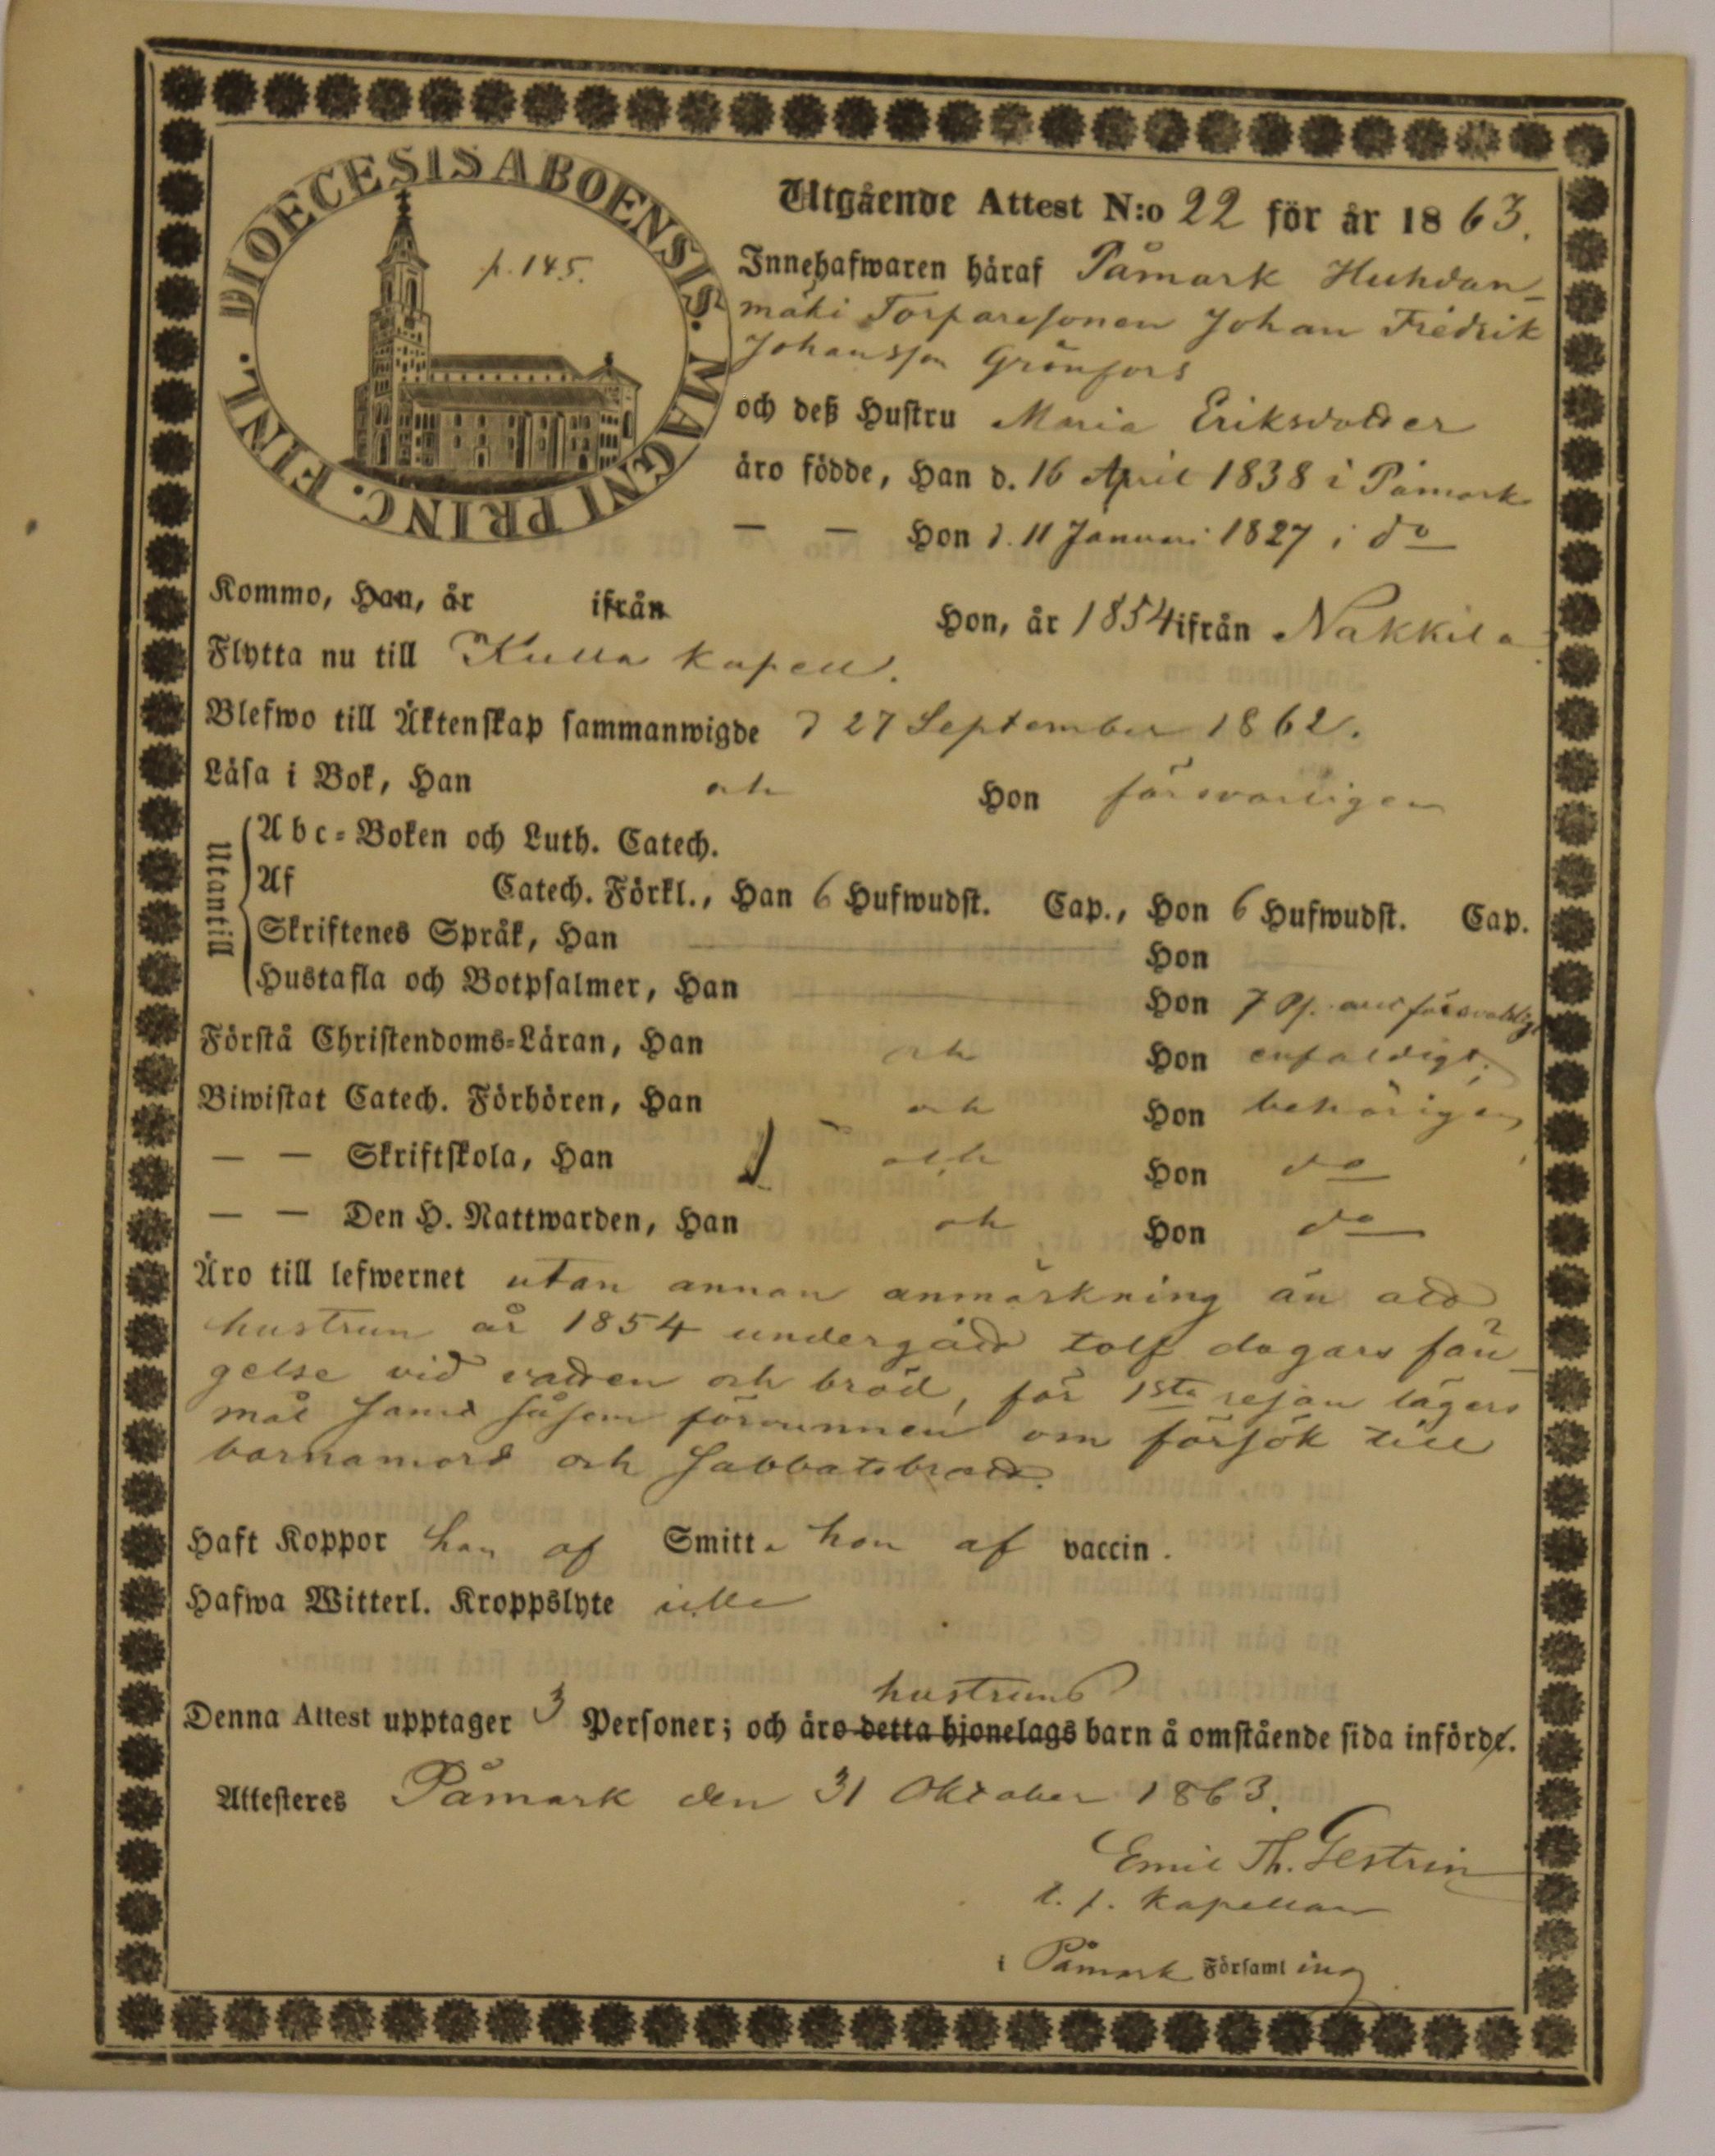 DIOECESIS ABOENSIS. MAGNI PRINC. FINL.
p. 145.
Utgående Attest N:o 22 för år 1863.
Innehafwaren häraf Påmark Huhdan-
mäki Torparesonen Johan Fredrik
Johansson Grönfors
och deß Hustru Maria Eriksdotter
äro födde, Han d. 16 April 1838 i Påmark
— — Hon d. 11 Januari 1827 i do
Kommo, Han, år ifrån Hon, år 1854 ifrån Nakkila
Flytta nu till Kulla kapell.
Blefwo till Äktenskap sammanwigde d 27 September 1862.
Läsa i Bok, Han och Hon försvarligen
Utantill
Abc-Boken och Luth. Catech.
Af Catech. Förkl., Han 6 Hufwudst. Cap., Hon 6 Hufwudst. Cap.
Skriftenes Språk, Han Hon
Hustafla och Botpsalmer, Han Hon 7 Ps. försvarligt
Förstå Christendoms-Läran, Han och Hon enfaldigt;
Biwistat Catech. Förhören, Han och Hon behörigen
— — Skriftskola, Han och Hon do
— — Den H. Nattwarden, Han och Hon do
Äro till lefwernet utan annan anmärkning än att
hustrun år 1854 undergått tolf dagars fän-
gelse vid vatten och bröd, för 1sta resan lägers
mål samt såsom förvunnen om försök till
barnamord och Sabbatsbrott.
Haft Koppor han af Smitta hon af vaccin.
Hafwa Witterl. Kroppslyte icke
hustruns
Denna Attest upptager 3 Personer; och äro detta hjonelags barn å omstående sida införde.
Attesteres Påmark den 31 Oktober 1863.
Emil Th. Gestrin
t. f. kapellan
i Påmark Församling